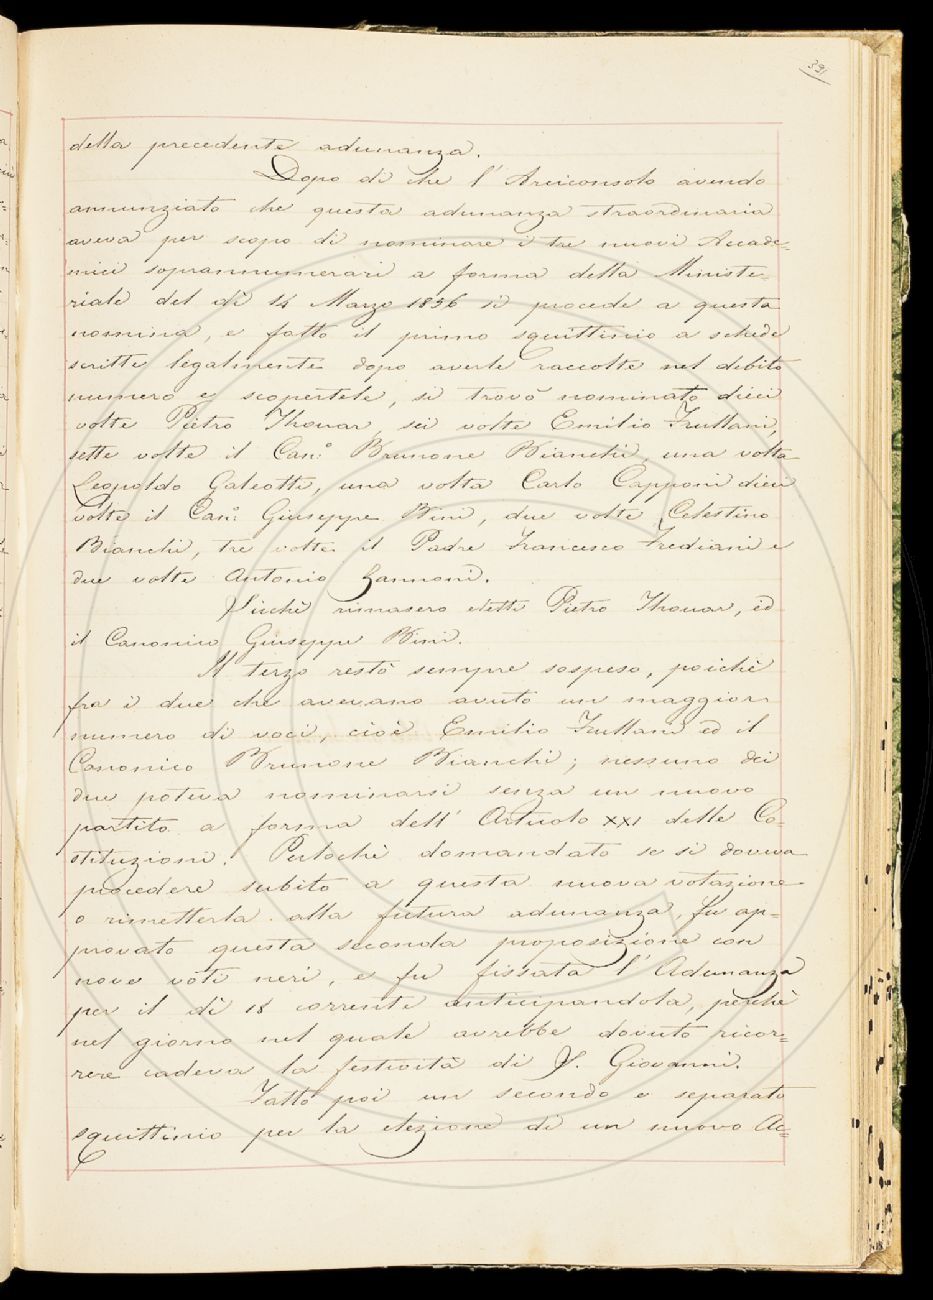 391
della precedente adunanza.
Dopo di che l'Arciconsolo avendo
annunziato che questa adunanza straordinaria
aveva per scopo di nominare i tre nuovi Accade=
mici soprannumerari a forma della Ministe=
riale del dì 14 Marzo 1856 si procedè a questa
nomina, e fatto il primo squittinio a schede
scritte legalmente dopo averle raccolte nel debito
numero e scopertele, si trovò nominato dieci
volte Pietro Thouar, sei volte Emilio Frullani,
sette volte il Can.° Brunone Bianchi, una volta
Leopoldo Galeotti, una volta Carlo Capponi dieci
volte il Can.° Giuseppe Bini, due volte Celestino
Bianchi, tre volte il Padre Francesco Frediani e
due volte Antonio Zannoni.
Sicchè rimasero eletti Pietro Thouar, ed
il Canonico Giuseppe Bini.
Il terzo restò sempre sospeso, poichè
fra i due che avevano avuto un maggior
numero di voci, cioè Emilio Frullani ed il
Canonico Brunone Bianchi; nessuno dei
due poteva nominarsi senza un nuovo
partito a forma dell'Articolo XXI delle Co=
stituzioni. Perlochè domandato se si doveva
procedere subito a questa nuova votazione
o rimetterla alla futura adunanza, fu ap=
provato questa seconda proposizione con
nove voti neri, e fu fissata l'Adunanza
per il dì 18 corrente anticipandola, perchè
nel giorno nel quale avrebbe dovuto ricor=
rere cadeva la festività di S. Giovanni.
Fatto poi un secondo e separato
squittinio per la elezione di un nuovo Ac=